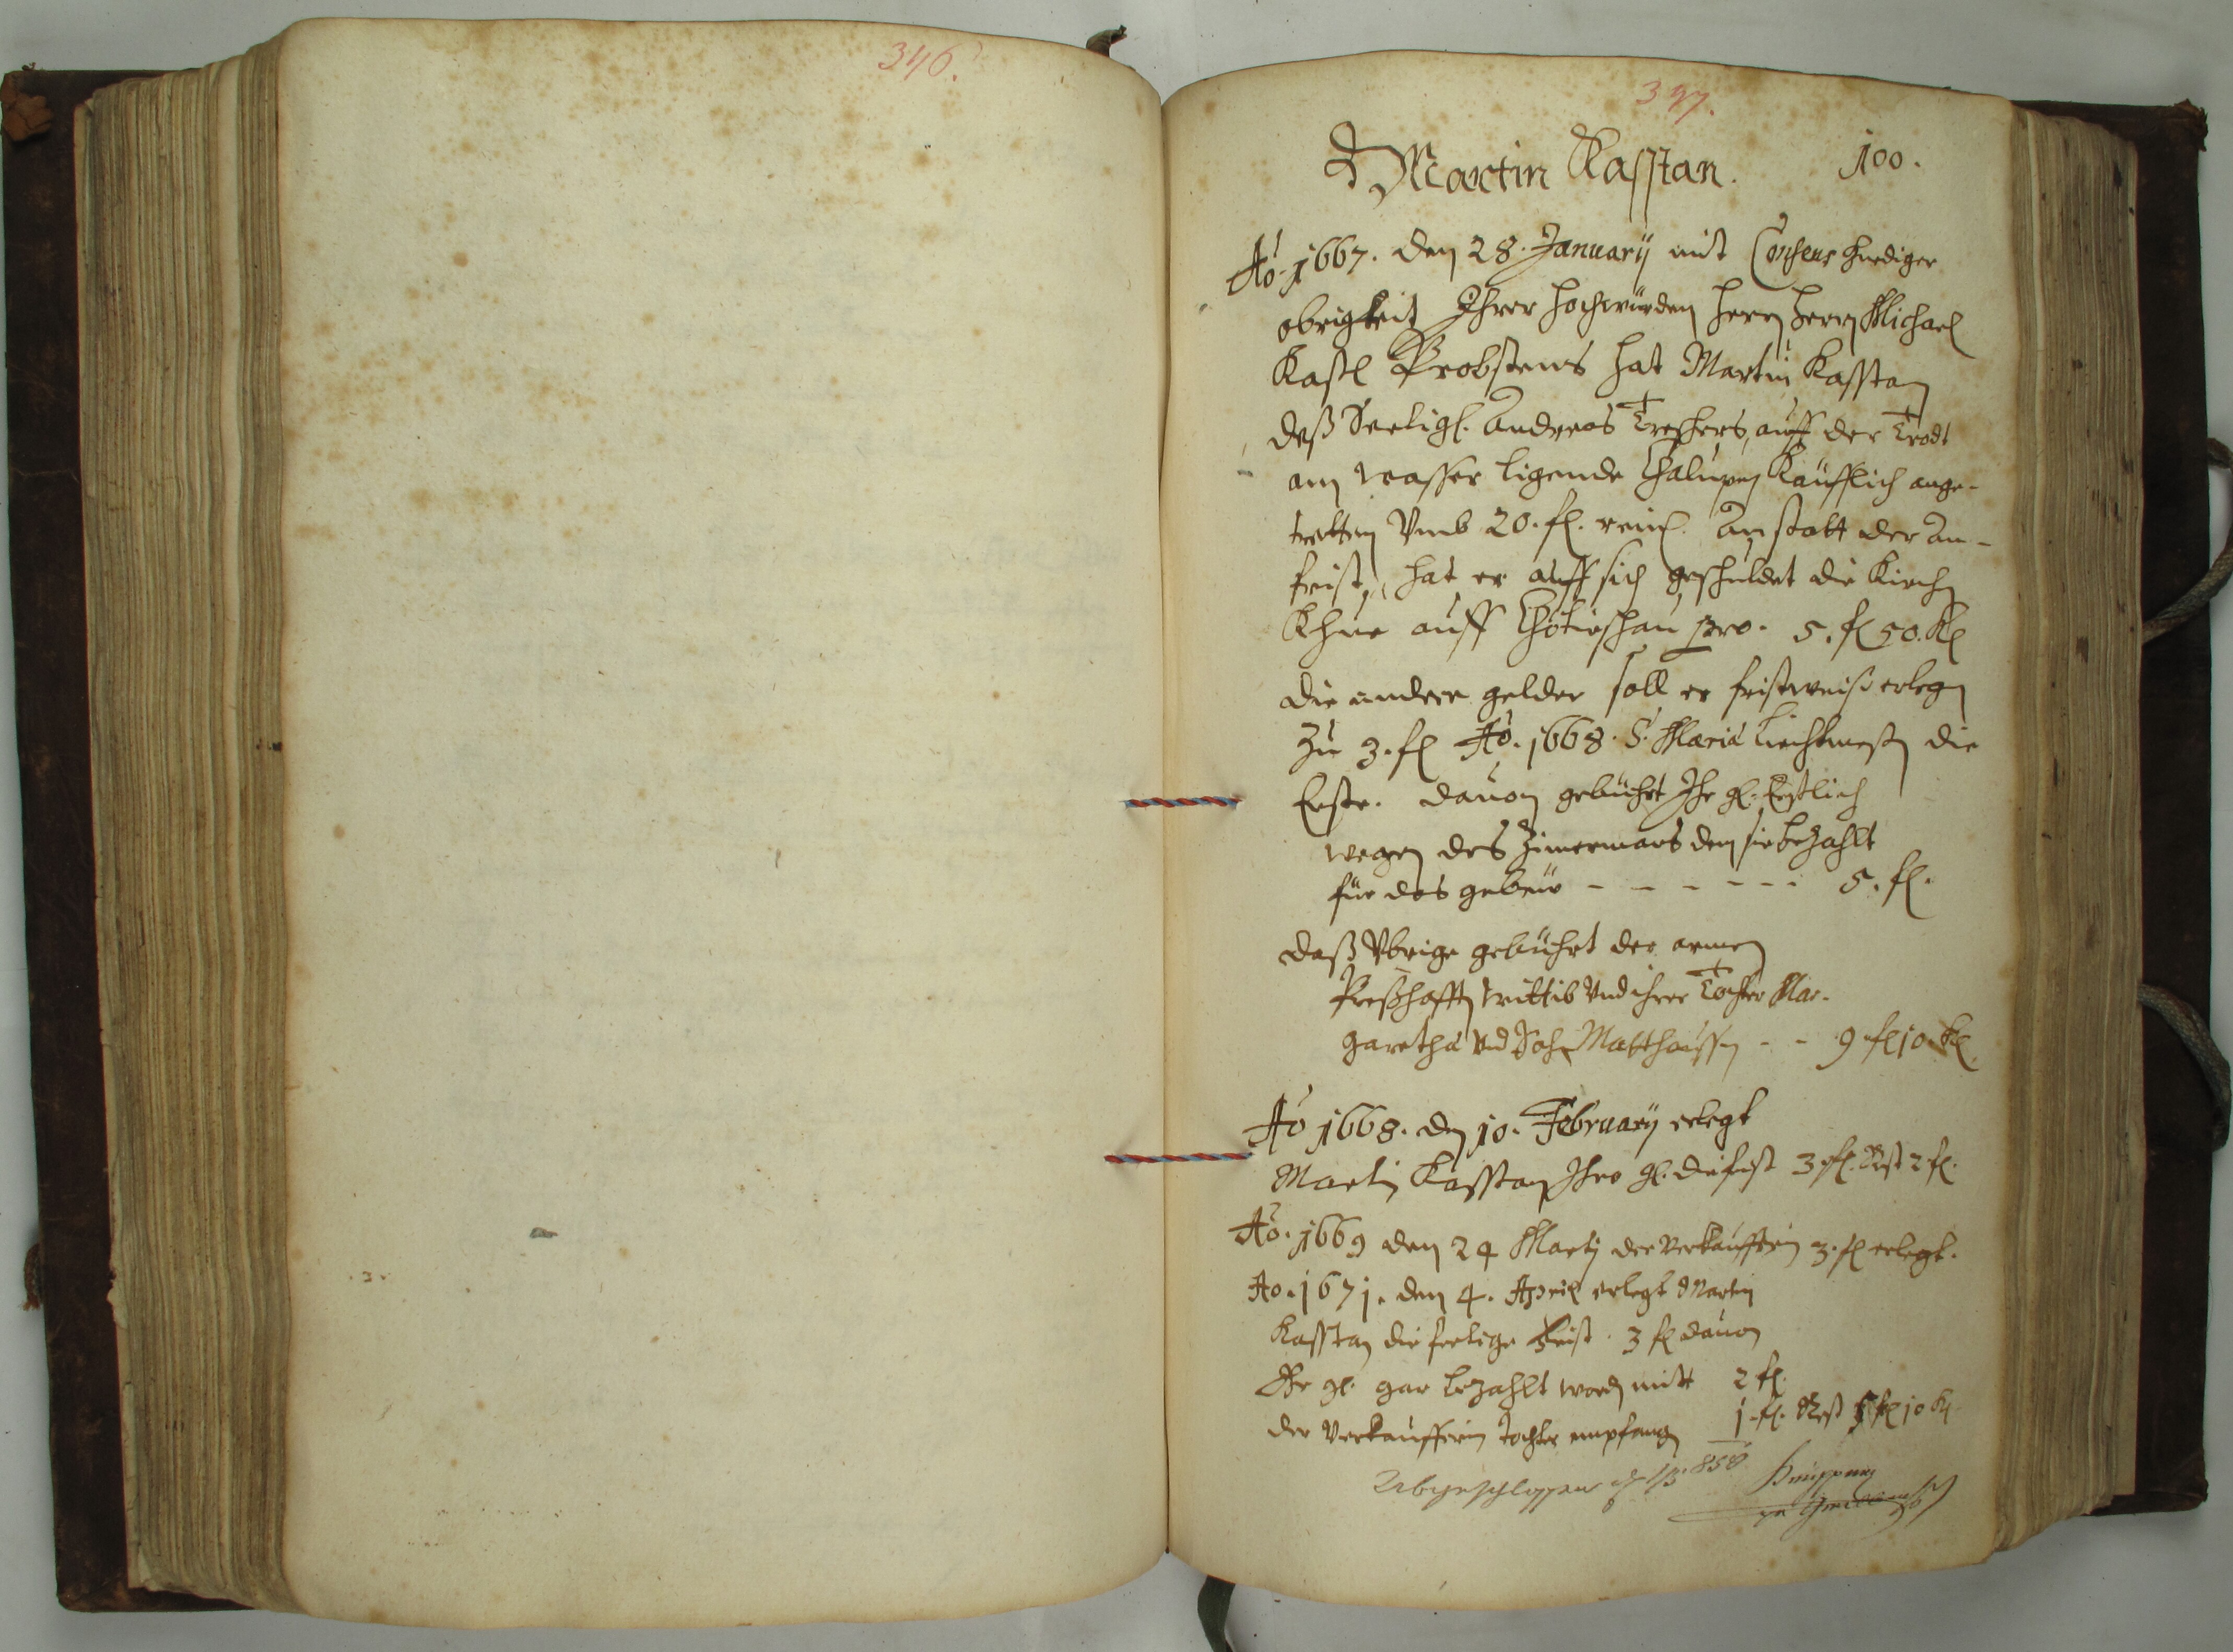 346.
347.
Martin Kasstan. 100.
Ao. 1667. den 28. January mit Consens gnediger
obrigkeit Ihrer Hochwürden Herrn Herrn Michael
Kastl Probstens hat Martin Kasstan
deß Seeligl. Andreas auff der Trodt
am wasser ligende Chalupen Käufflich ange-
tretten Vmb 20. fl. reinl. Anstatt der An-
frist, hat er auff sich geschuldet die Kirchen
Khue auff Chotieschau pro. 5. fl 50. Kl
die andere gelder soll er fristweiß erlegen
Zu 3. fl Ao. 1668. S. Maria Liechtmeßen die
Erste. dauon gebührt Ihr gl. Erstlich
wegen des Zimermans den sie bezahlt
für das gebeu - - - - - - 5. fl.
daß Vbrige gebührt der armen
Preßhafften wittib Vnd ihrer Tochter Mar-
garetha Vnd Sohn Matthaussen - - 9 fl 10. Kl
Ao 1668. den 10. February erlegt
Martin Kasstan Ihro gl. die frist 3 fl. Rest 2 fl.
Ao. 1669 den 24 Marty der Verkaufferin 3. fl erlegt.
Ao. 1671. den 4. April erlegt Martin
Kasstan die feelige Frist. 3 fl dauon
Ihr gl. gar bezahlt worden mitt 2 fl.
der Verkaufferin tochter empfangen 1. fl. Rest 5 fl 10 Kl.
Abgeschlossen 858